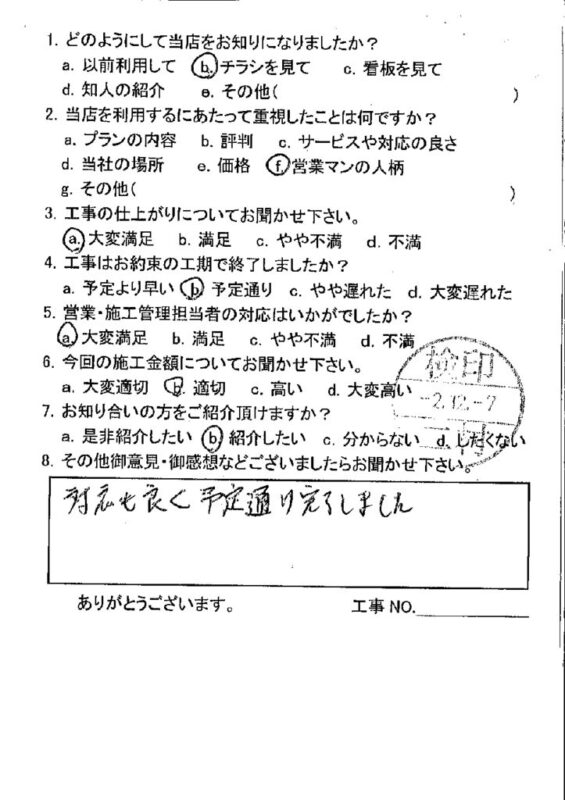 1. どのようにして当店をお知りになりましたか？
a. 以前利用して b. チラシを見て c. 看板を見て
d. 知人の紹介 e. その他( )
2. 当店を利用するにあたって重視したことは何ですか？
a. プランの内容 b. 評判 c. サービスや対応の良さ
d. 当社の場所 e. 価格 f. 営業マンの人柄
g. その他( )
3. 工事の仕上がりについてお聞かせ下さい。
a. 大変満足 b. 満足 c. やや不満 d. 不満
4. 工事はお約束の工期で終了しましたか？
a. 予定より早い b. 予定通り c. やや遅れた d. 大変遅れた
5. 営業・施工管理担当者の対応はいかがでしたか？
a. 大変満足 b. 満足 c. やや不満 d. 不満
6. 今回の施工金額についてお聞かせ下さい。
a. 大変適切 b. 適切 c. 高い d. 大変高い
検印
-2.12.-7
7. お知り合いの方をご紹介頂けますか？
a. 是非紹介したい b. 紹介したい c. 分からない d. したくない
8. その他御意見・御感想などございましたらお聞かせ下さい。
対応も良く予定通り完了しました
ありがとうございます。 工事 NO.